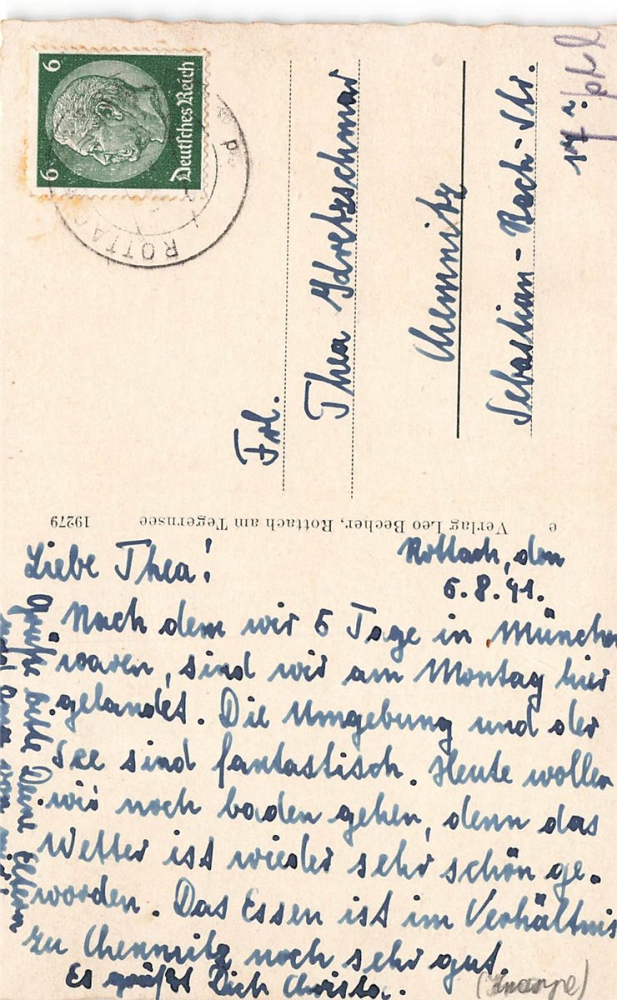 6 6
Deutsches Reich
ROTTA
Frl.
Thea Kretzschmar
Chemnitz
Sebastian-Bach-Str.
17
ptl
c Verlag Leo Becher, Rottach am Tegernsee 19279
Rottach, den
6.8.41.
Liebe Thea!
Nach dem wir 5 Tage in München
waren, sind wir am Montag hier
gelandet. Die Umgebung und der
See sind fantastisch. Heute wollen
wir noch baden gehen, denn das
Wetter ist wieder sehr schön ge-
worden. Das Essen ist im Verhältnis
zu Chemnitz noch sehr gut.
Es grüßt Dich Christa.
Grüße bitte Deine Eltern
von mir